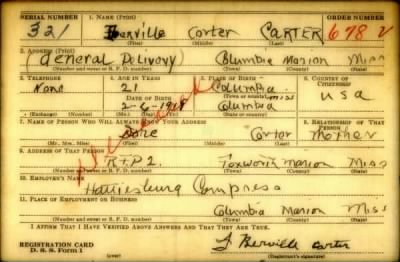 SERIAL NUMBER 1. NAME (Print) ORDER NUMBER
321 Berville Corter CARTER 678 V
(First) (Middle) (Last)
2. ADDRESS (Print)
(General Delivovy) Blumbia Marion Miss
(Number and street or R. F. D. number) (Town) (County) (State)
3. TELEPHONE 4. AGE IN YEARS 5. PLACE OF BIRTH 6. COUNTRY OF CITIZENSHIP
None 21 Columbia
DATE OF BIRTH miss USA
2-6- Columbia
(Exchange) (Number) (Mo.) (Day) (Yr.) (State or country)
7. NAME OF PERSON WHO WILL ALWAYS KNOW YOUR ADDRESS 8. RELATIONSHIP OF THAT PERSON
Cortor Mother
(Mr., Mrs., Miss) (First) (Middle) (Last)
9. ADDRESS OF THAT PERSON
Rt 2. Foxworth Marion Miss
(Number and street or R. F. D. number) (Town) (County) (State)
10. EMPLOYER'S NAME
Hattiesburg Compress
11. PLACE OF EMPLOYMENT OR BUSINESS
Columbia Marion Miss
(Number and street or R. F. D. number) (Town) (County) (State)
I AFFIRM THAT I HAVE VERIFIED ABOVE ANSWERS AND THAT THEY ARE TRUE.
REGISTRATION CARD
D. S. S. Form 1 Berville Corter
(Registrant's signature)